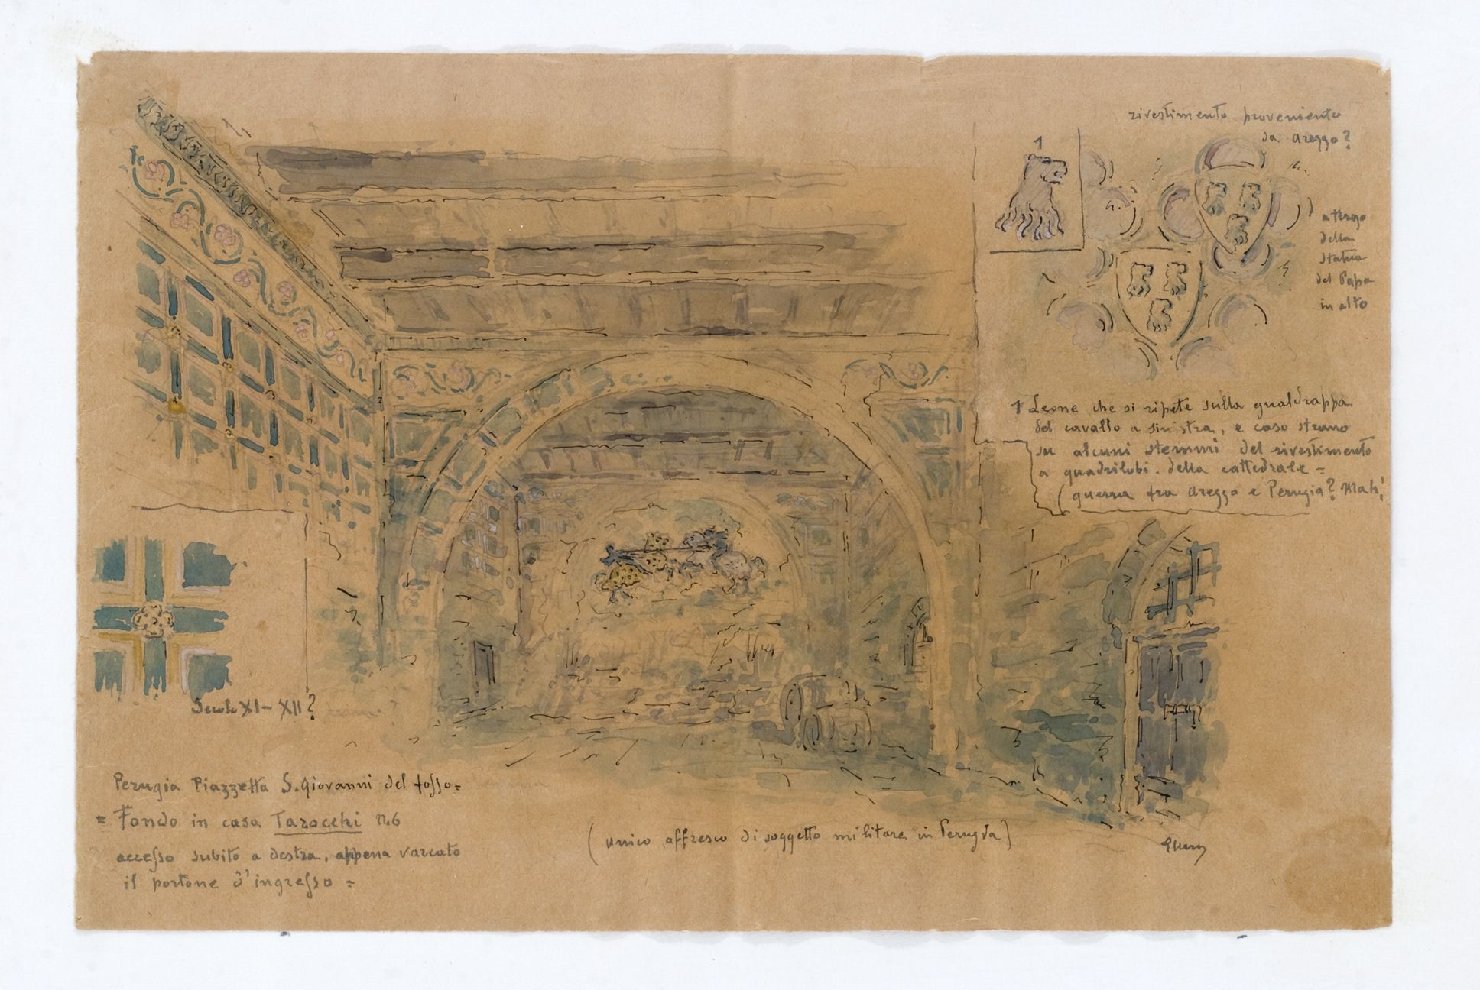 rivestimento proveniente
da Arezzo?
1
attergo
della
statua
del Papa
in alto
1 Leone che si ripete sulla gualdrappa
del cavallo a sinistra, e caso strano
su alcuni stemmi del rivestimento
a quadrilobi della cattedrale =
(guerra fra Arezzo e Perugia?
Secolo XI - XII?
Perugia Piazzetta S. Giovanni del fosso =
= Fondo in casa Tarocchi n. 6
accesso subito a destra, appena varcato
il portone d'ingresso =
(unico affresco di soggetto militare in Perugia)